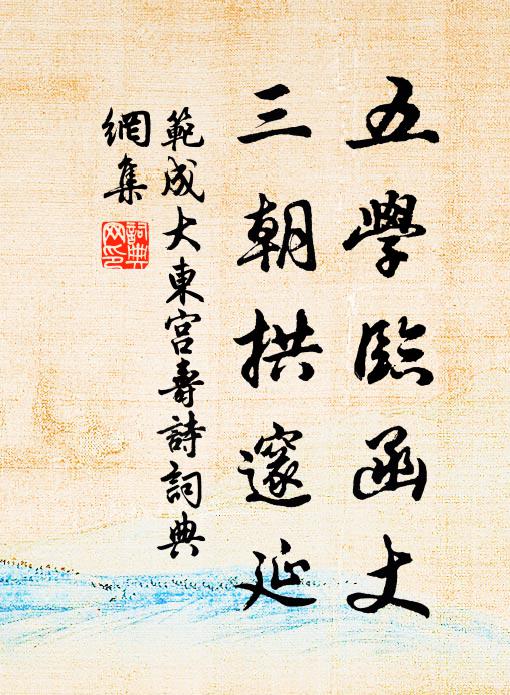 五學臨函丈
三朝拱邃延
範成大東宮壽詩詞典
網集
詞典
网印